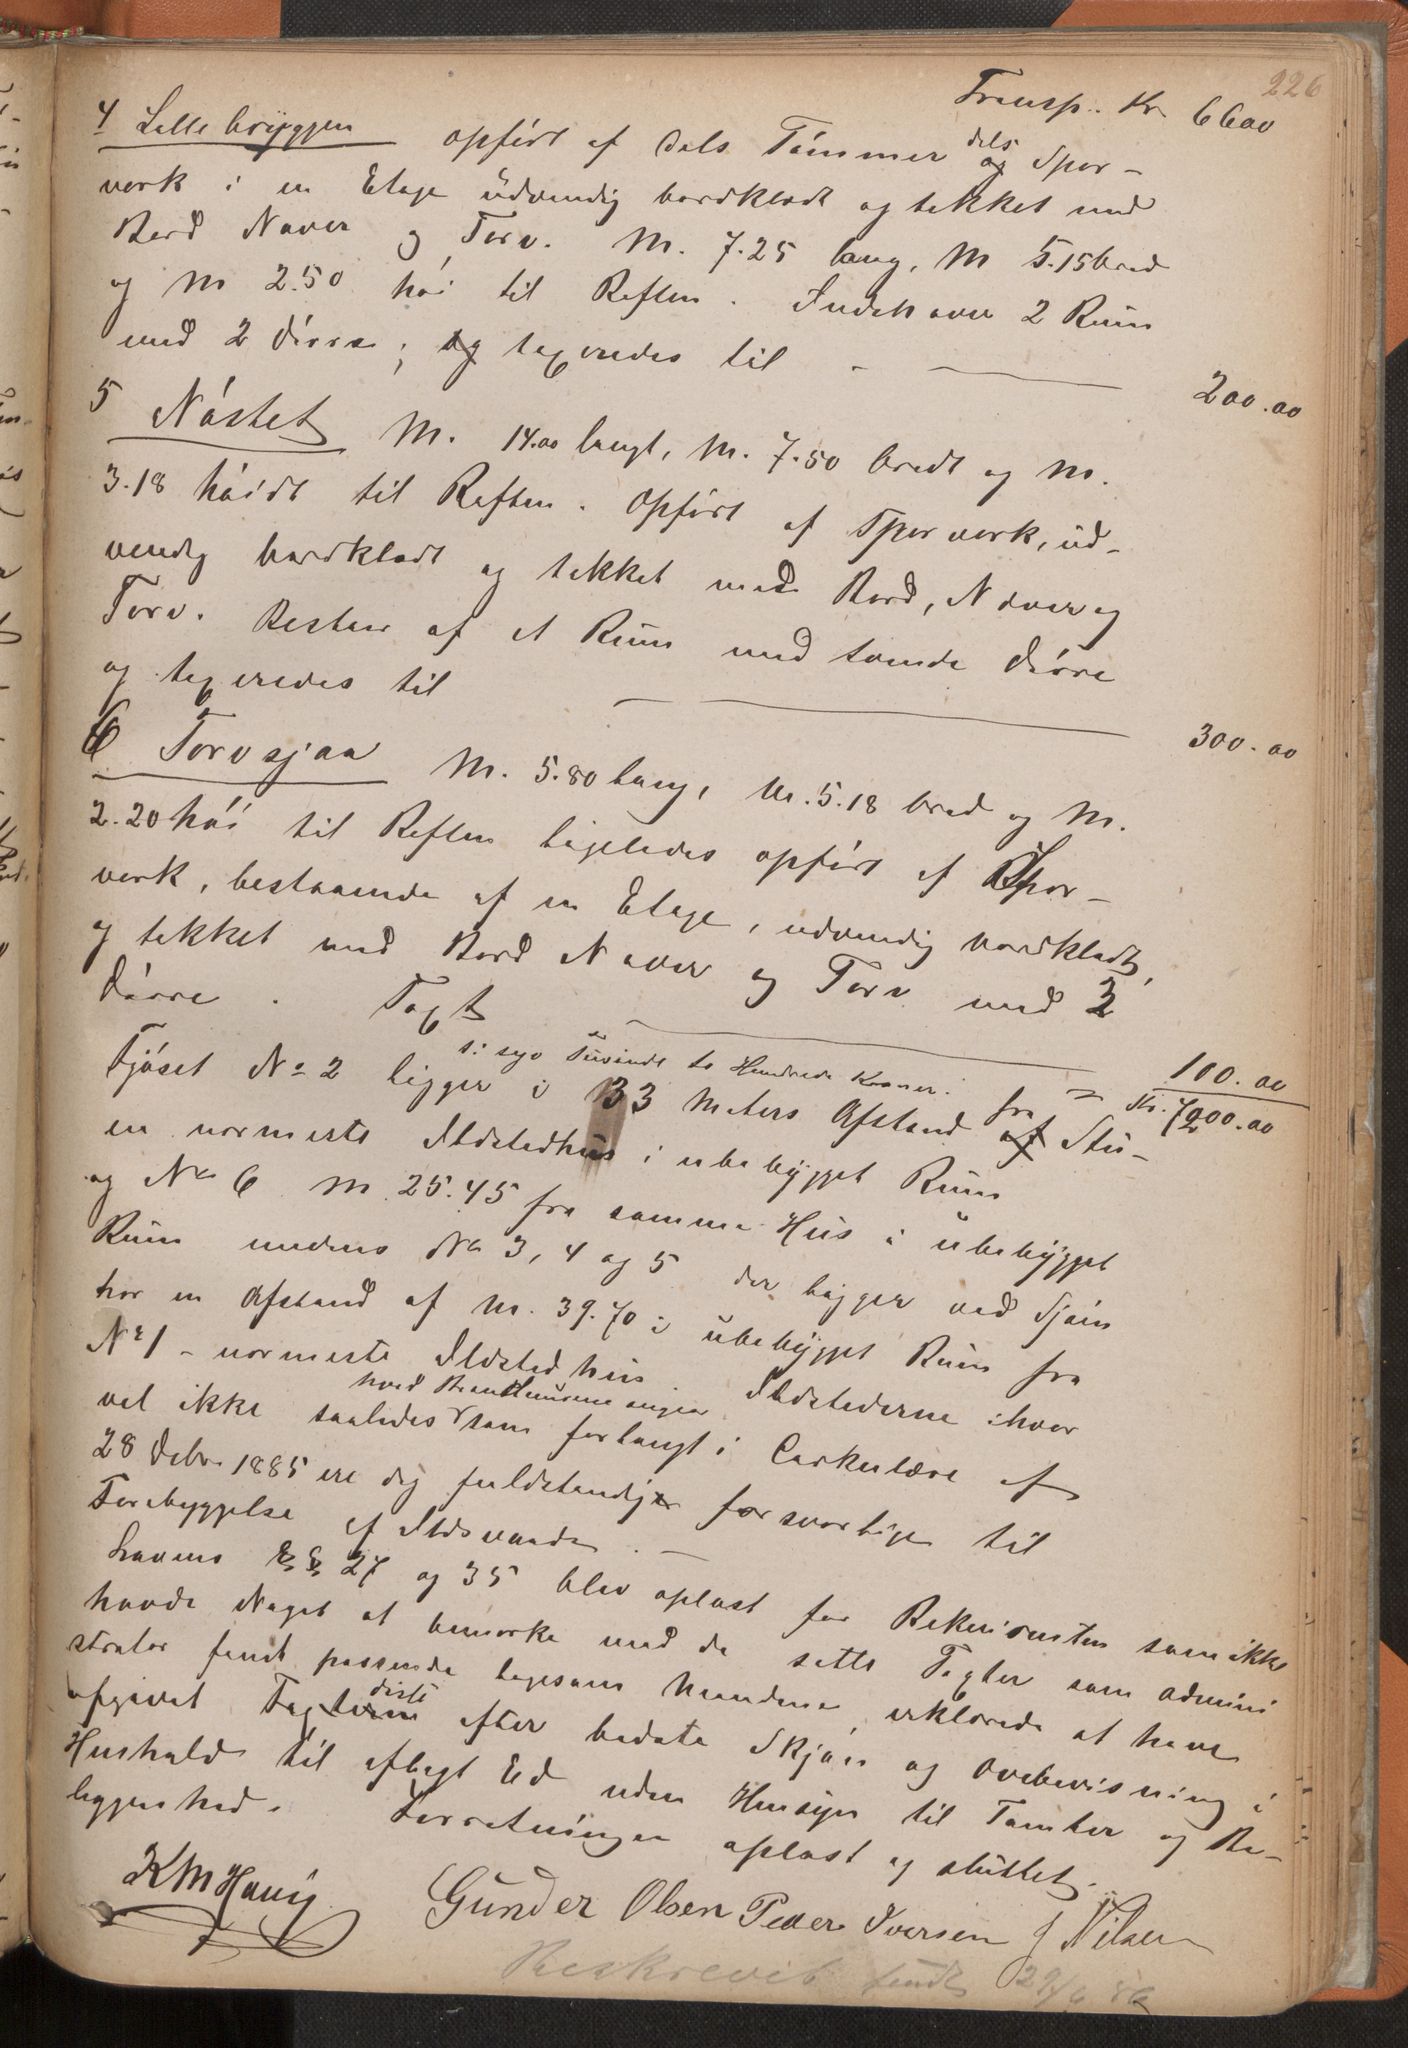 226
Transp. Kr 6600
4 Lillebryggen opført af dels Tømmer dels og Spor-
verk i en Etage udvendig bordklædt og tækket med
Bord Never og Torv. M. 7.25 lang, M 5.15 bred
og M 2.50 høi til Raften. Indehaver 2 Rum
med 2 Dørre; og taxeredes til - 200.00
5 Nøstet M. 14.00 langt, M. 7.50 bredt og M.
3.18 høidt til Raften. Opført af Sporverk, ud-
vendig bordklædt og tækket med Bord, Never og
Torv. Bestaar af et Rum med tvende Dørre
og taxeredes til 300.00
6 Torvsjaa M. 5.80 lang, M. 5.18 bred og M.
2.20 høi til Raften ligeledes opført af Spor-
verk, bestaaende af en Etage, udvendig bordklædt,
og tækket med Bord Never og Torv med 2
Dørre. Taxt 100.00
s: syv Tusinde to Hundrede Kroner. Kr. 7200.00
Fjøset No 2 ligger i 33 Meters Afstand fra af Stu-
en nærmeste Ildstedhus i ubebygget Rum
og No 6 M. 25.45 fra samme Hus i ubebygget
Rum medens No 3, 4 og 5 der ligger ved Sjøen
har en Afstand af M. 39.70 i ubebygget Rum fra
No 1 - nærmeste Ildstedhus. Ildstederne: hvor
vel ikke saaledes hvad Brandmurene angaar som forlangt i Cirkulære af
28 Debr 1885 ere dog fuldstændig forsvarlige til
Forebyggelse af Ildsvaade. -
Lovens §§ 27 og 35 blev oplæst for Rekvirenten som ikke
havde Noget at bemærke med de satte Taxter som Admini
strator fandt passende ligesom Mændene erklærede at have
afgivet Taxterne disse efter bedste Skjøn og Overbevisning i
Henhold til aflagt Ed uden Hensyn til Tomter og Be-
liggenhed. Forretningen oplæst og sluttet.
KM Havig Gunder Olsen Peder Iversen J Nilsen
Beskrevet sendt 29/6 86